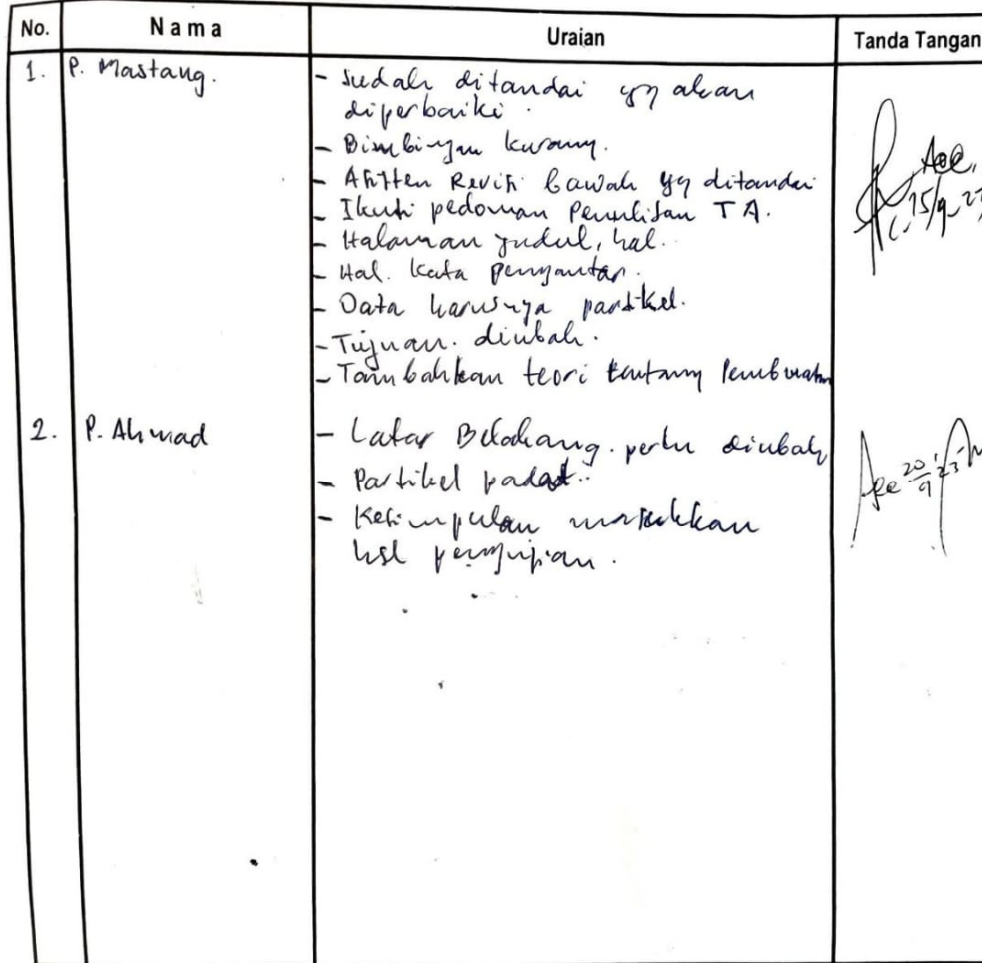 No. Nama Uraian Tanda Tangan
1. P. Mastang. - Sudah ditandai yg akan
diperbaiki.
- Bimbingan kurang.
- Revisi bawah yg ditandai
- Ikuti pedoman Penulisan TA.
- Halaman judul, hal.
- Hal. Kata pengantar.
- Data harusnya partikel.
- Tujuan. diubah.
- Tambahkan teori tentang Pembuatan
Acc,
15/9-23
2. P. Ahmad - Latar Belakang. perlu diubah
- Partikel padat..
- Kesimpulan masukkan
hsl pengujian.
Acc 20/9 '23